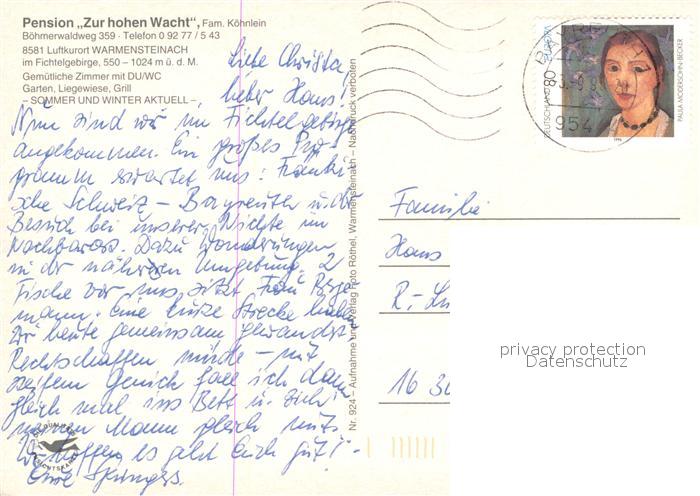 Pension „Zur hohen Wacht“, Fam. Köhnlein
Böhmerwaldweg 359 · Telefon 0 92 77 / 5 43
8581 Luftkurort WARMENSTEINACH
im Fichtelgebirge, 550 – 1024 m ü. d. M.
Gemütliche Zimmer mit DU/WC
Garten, Liegewiese, Grill
– SOMMER UND WINTER AKTUELL –
Liebe Christa,
lieber Hans!
Nun sind wir im Fichtelgebirge
angekommen. Ein großes Pro-
gramm erwartet uns: Fränki-
sche Schweiz – Bayreuth u. der
Besuch bei unserer Nichte im
Nachbarort. Dazu Wanderungen
in der näheren Umgebung. 2
Tische vor uns sitzt Frau Berg
mann. Eine kurze Strecke haben
wir heute gemeinsam gewandert.
Rechtschaffen müde – mit
steifem Genick falle ich dann
gleich mal ins Bett u. zieh'
meinen Mann gleich mit.
Wir hoffen, es geht Euch gut! –
Eure Springers.
Nr. 924 – Aufnahme und Verlag Foto Röthel, Warmensteinach – Nachdruck verboten
EUROPA
DEUTSCHLAND 80
PAULA MODERSOHN-BECKER
1996
954
Familie
Hans
R.-Lu
16 3
privacy protection
Datenschutz